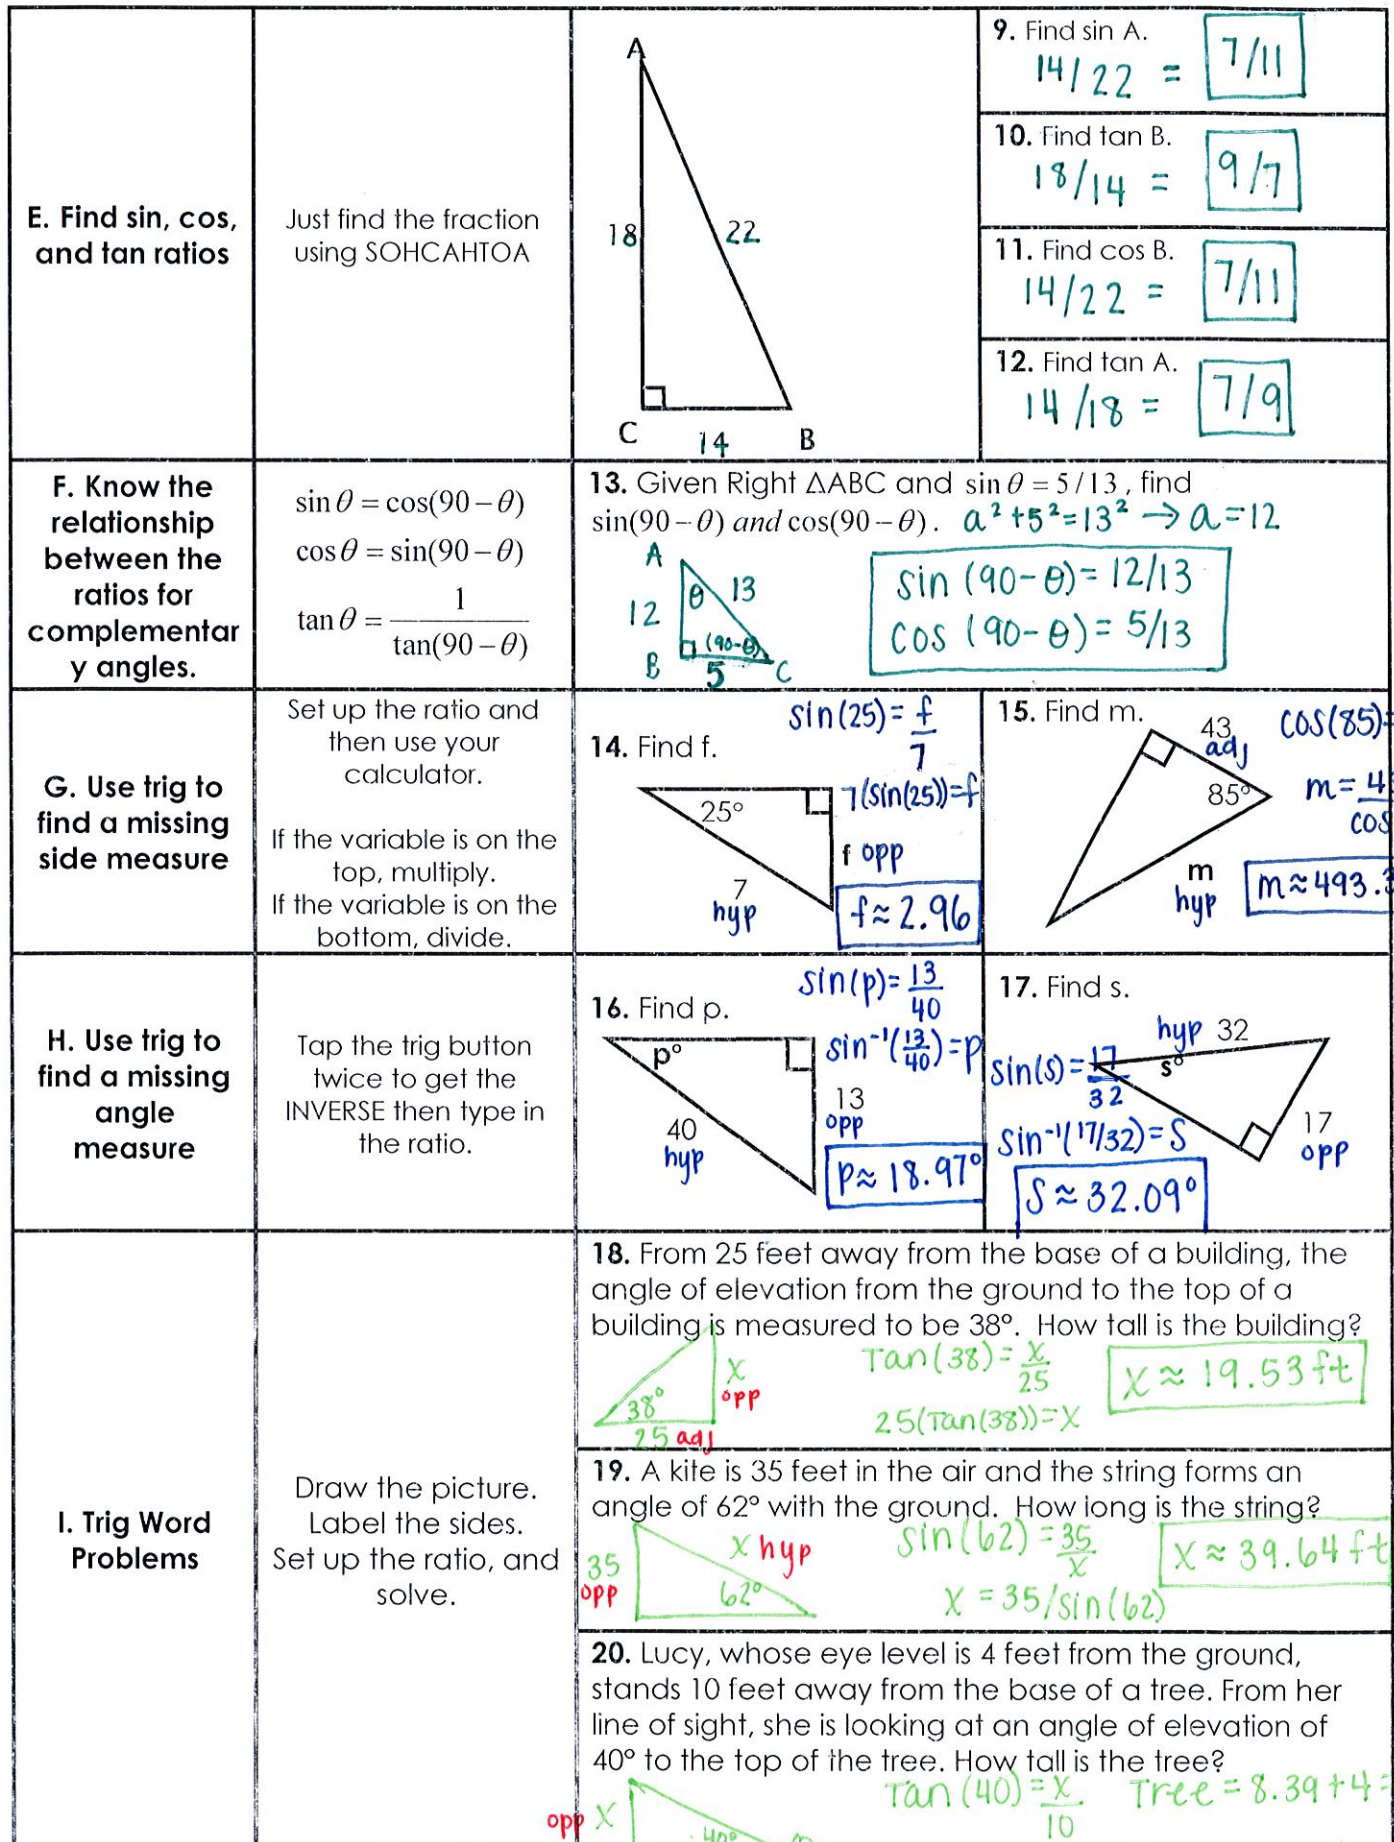 E. Find sin, cos,
and tan ratios
Just find the fraction
using SOHCAHTOA
A
18
22
C
14
B
9. Find sin A.
14/22 = 7/11
10. Find tan B.
18/14 = 9/7
11. Find cos B.
14/22 = 7/11
12. Find tan A.
14/18 = 7/9
F. Know the
relationship
between the
ratios for
complementar
y angles.
sin θ = cos(90 − θ)
cos θ = sin(90 − θ)
tan θ = 1 / tan(90 − θ)
13. Given Right ΔABC and sin θ = 5/13, find
sin(90 − θ) and cos(90 − θ). a² + 5² = 13² → a = 12
A
θ
13
12
(90-θ)
B
5
C
sin (90-θ) = 12/13
cos (90-θ) = 5/13
G. Use trig to
find a missing
side measure
Set up the ratio and
then use your
calculator.
If the variable is on the
top, multiply.
If the variable is on the
bottom, divide.
14. Find f.
sin(25) = f/7
7(sin(25)) = f
25°
f opp
7
hyp
f ≈ 2.96
15. Find m.
43
adj
cos(85) =
85°
m = 4
cos
m
hyp
m ≈ 493.3
H. Use trig to
find a missing
angle
measure
Tap the trig button
twice to get the
INVERSE then type in
the ratio.
16. Find p.
sin(p) = 13/40
sin⁻¹(13/40) = p
p°
13
opp
40
hyp
p ≈ 18.97°
17. Find s.
hyp 32
sin(s) = 17/32
s°
sin⁻¹(17/32) = s
17
opp
s ≈ 32.09°
I. Trig Word
Problems
Draw the picture.
Label the sides.
Set up the ratio, and
solve.
18. From 25 feet away from the base of a building, the
angle of elevation from the ground to the top of a
building is measured to be 38°. How tall is the building?
Tan(38) = x/25
x ≈ 19.53 ft
x
opp
38°
25 adj
25(Tan(38)) = x
19. A kite is 35 feet in the air and the string forms an
angle of 62° with the ground. How long is the string?
sin(62) = 35/x
x ≈ 39.64 ft
x hyp
35
opp
62°
x = 35/sin(62)
20. Lucy, whose eye level is 4 feet from the ground,
stands 10 feet away from the base of a tree. From her
line of sight, she is looking at an angle of elevation of
40° to the top of the tree. How tall is the tree?
Tan(40) = x/10
Tree = 8.39 + 4 =
opp x
40°